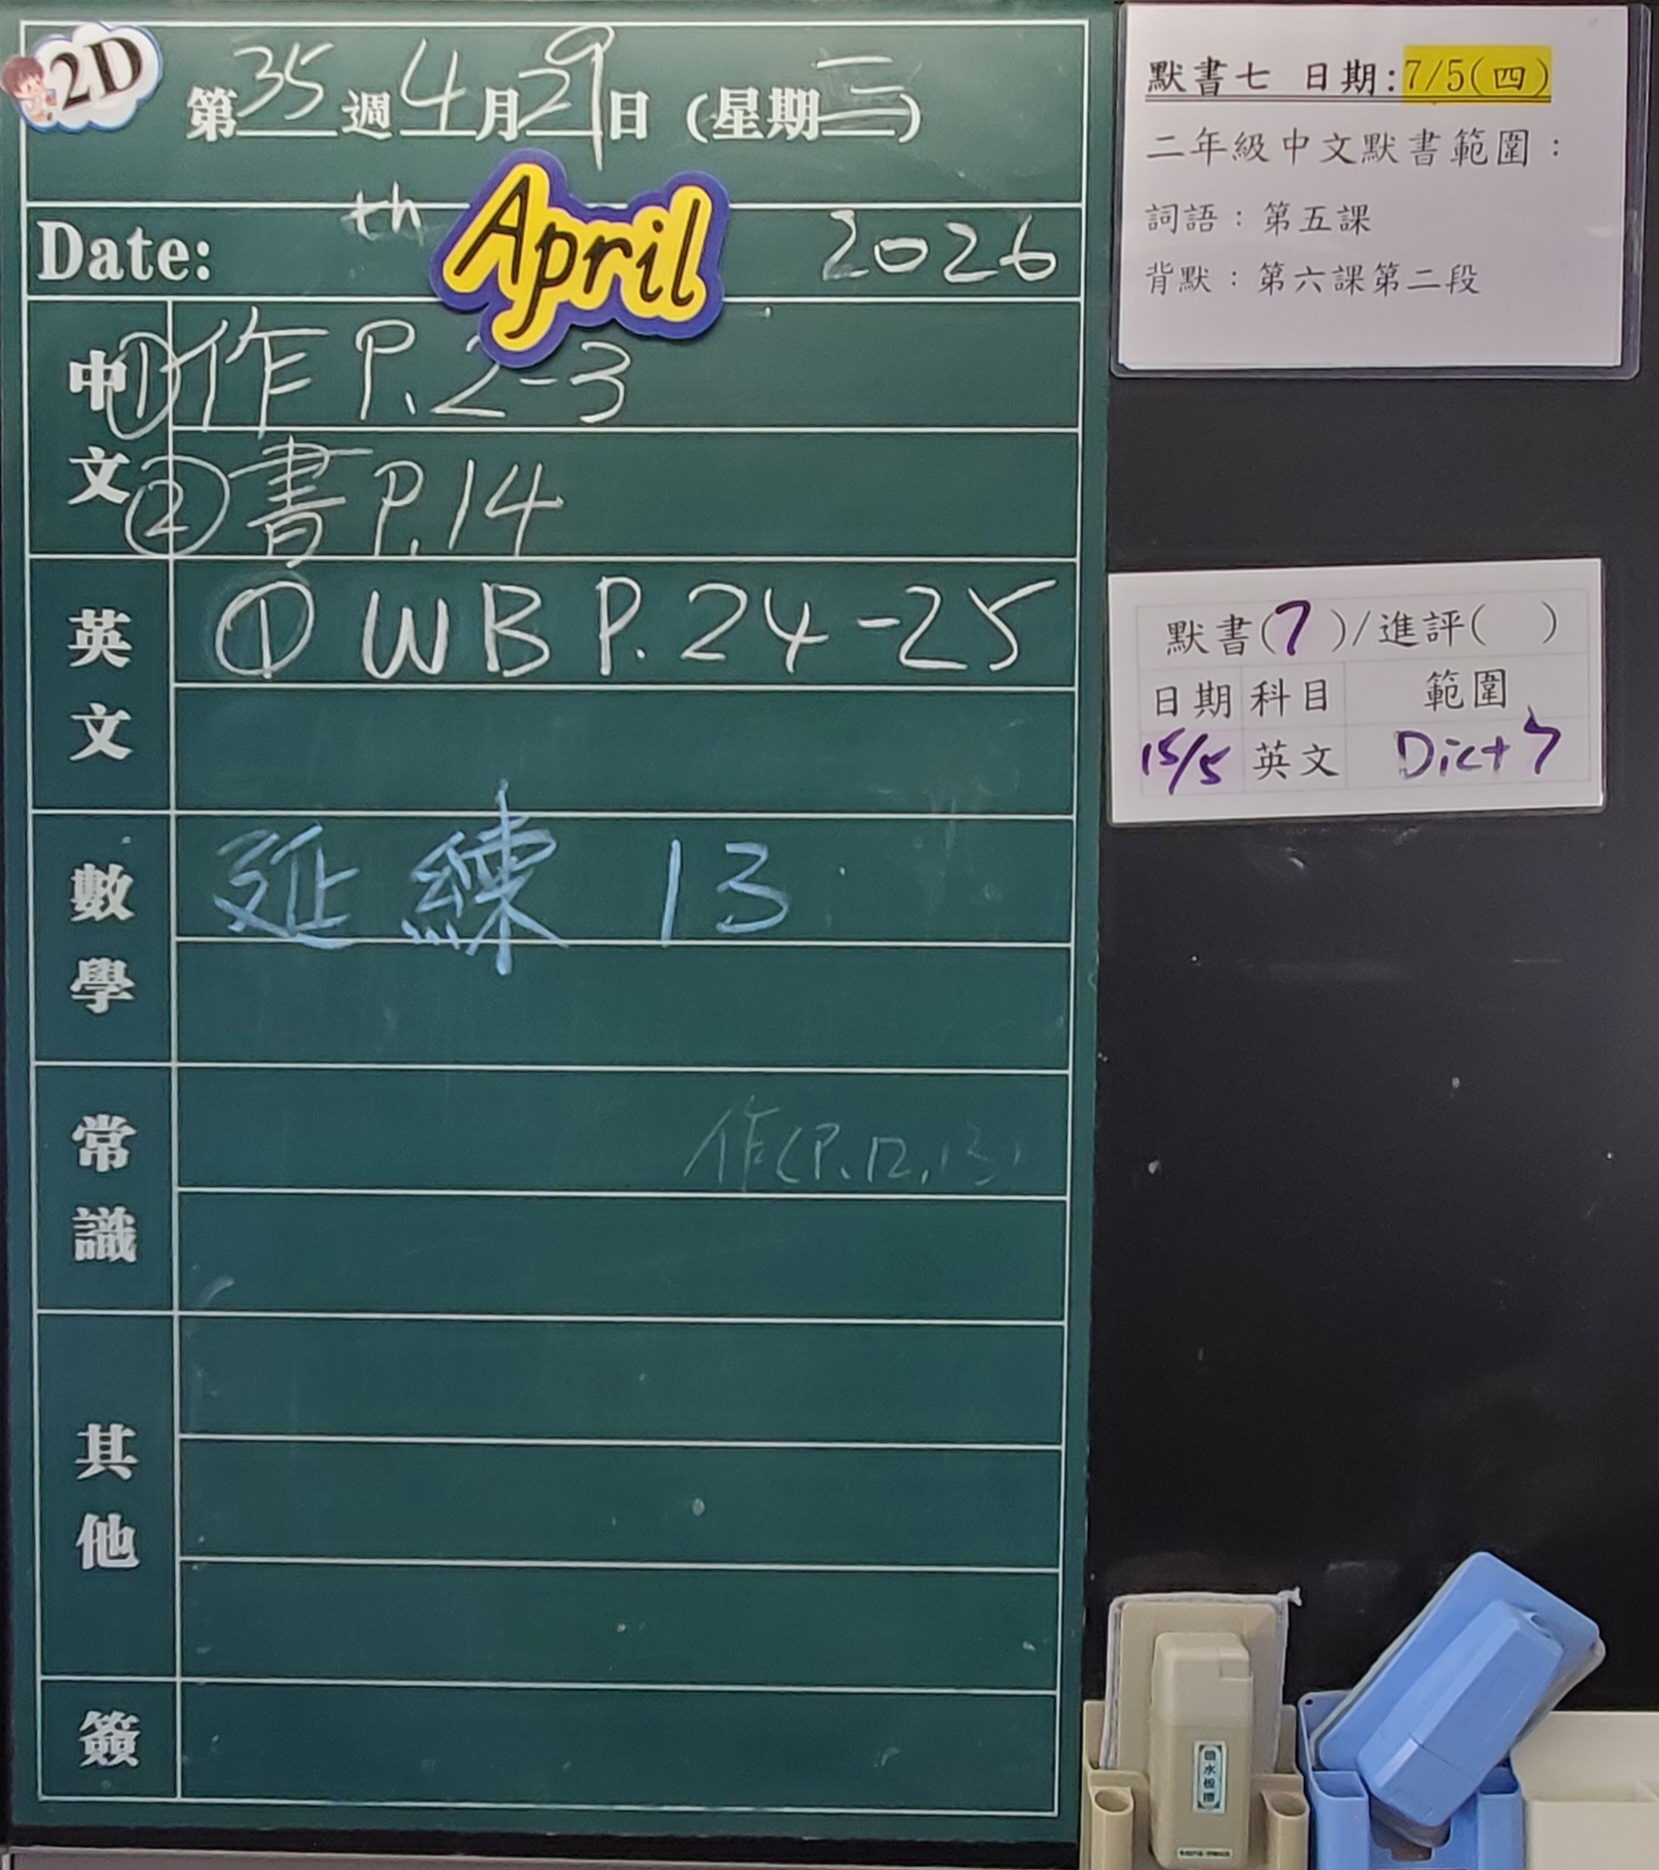 2D
第35週4月29日(星期三)
Date: th April 2026
中文
①作 P.2-3
②書 P.14
英文
① WB P.24-25
數學
延練 13
常識
作(P.12,13)
其他
簽
默書七 日期:7/5(四)
二年級中文默書範圍：
詞語：第五課
背默：第六課第二段
默書(7)/進評( )
日期 科目 範圍
15/5 英文 Dict 7
吸水板擦